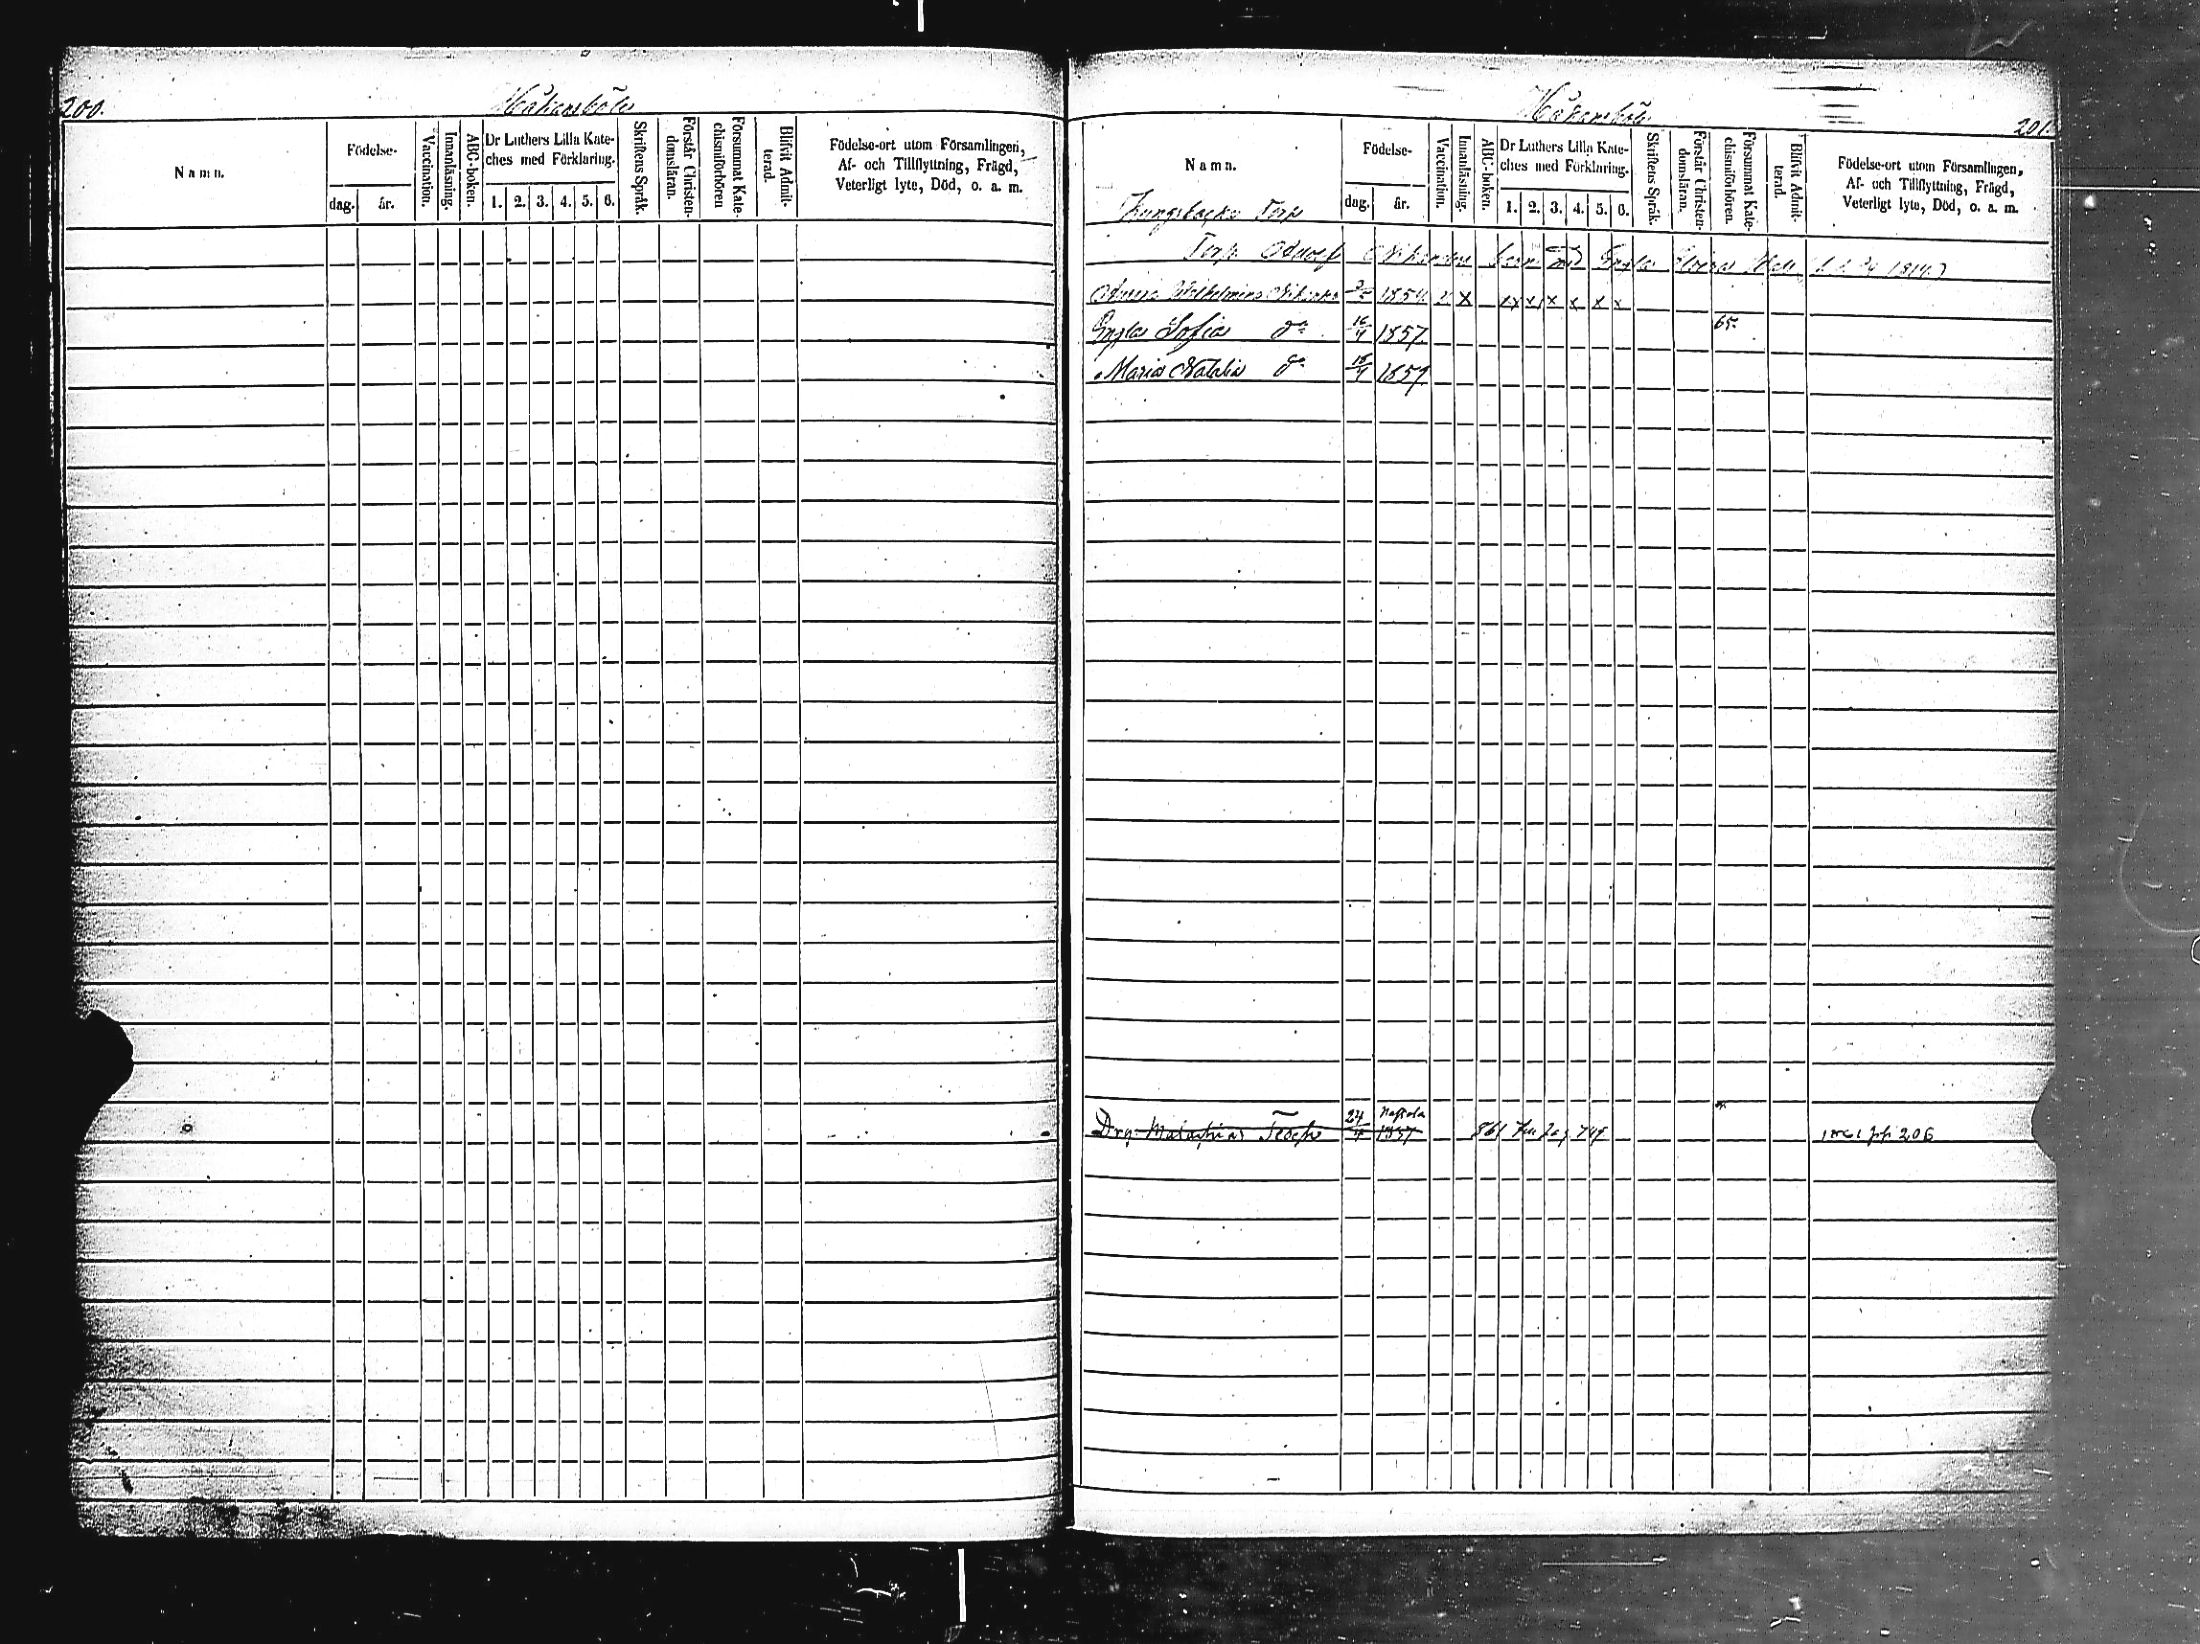 200.
Håkansböle
Namn.
Födelse-
dag. år.
Vaccination.
Innanläsning.
ABC-boken.
Dr Luthers Lilla Kate-
ches med Förklaring.
1. 2. 3. 4. 5. 6.
Skriftens Språk.
Förstår Christen-
domsläran.
Försummat Kate-
chismiförhören
Blifvit Admit-
terad.
Födelse-ort utom Församlingen,
Af- och Tillflyttning, Frägd,
Veterligt lyte, Död, o. a. m.
Håkansböle
201.
Namn.
Födelse-
dag. år.
Vaccination.
Innanläsning.
ABC-boken.
Dr Luthers Lilla Kate-
ches med Förklaring.
1. 2. 3. 4. 5. 6.
Skriftens Språk.
Förstår Christen-
domsläran.
Försummat Kate-
chismiförhören.
Blifvit Admit-
terad.
Födelse-ort utom Församlingen,
Af- och Tillflyttning, Frägd,
Veterligt lyte, Död, o. a. m.
Kungsbacka Torp
Torp. Adolf barn med
Wilhelmina 1854 x x x x x x
Sofia do 16/4 1857 65.
Maria Natalia do 1859
Drg. 24/4 1857 861 206